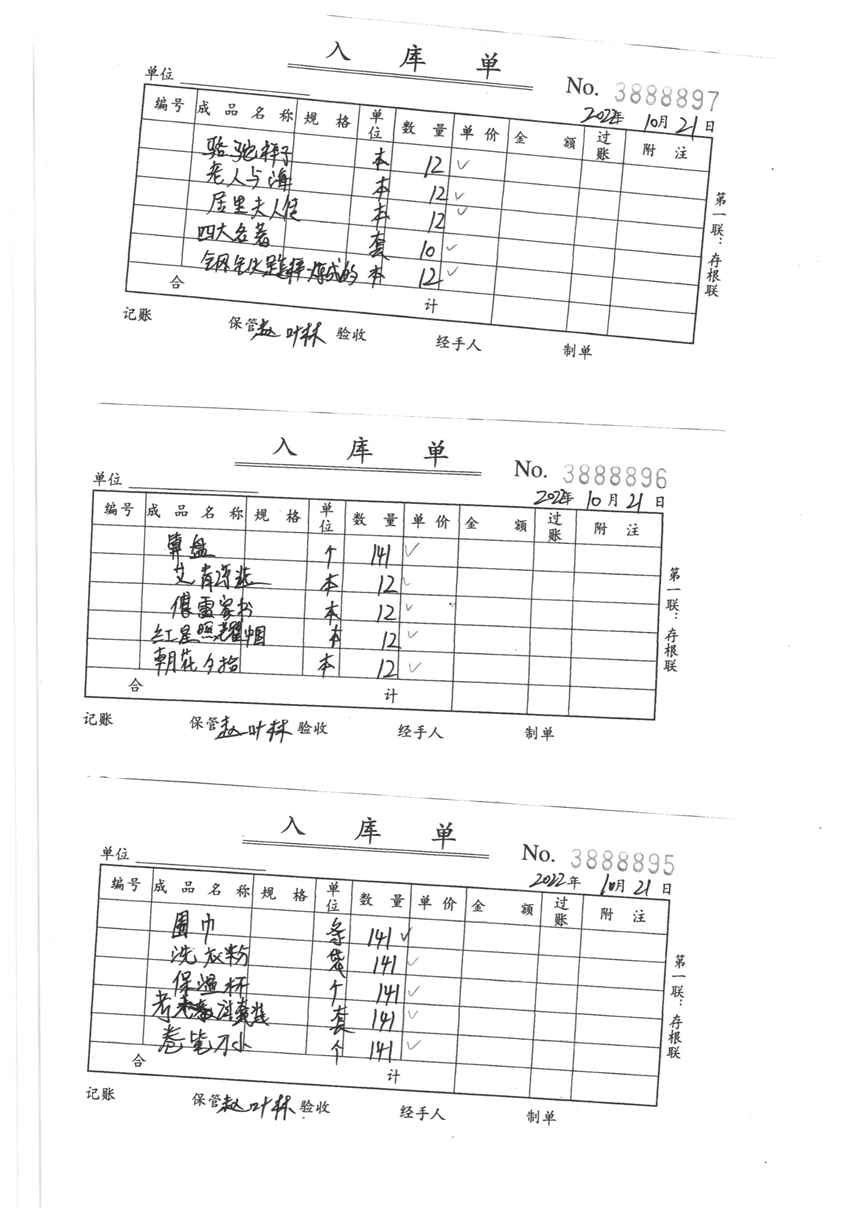 入 库 单
No. 3888897
单位
2022年 10月 21日
编号 成品名称 规格 单位 数量 单价 金额 过账 附注
骆驼祥子 本 12 ✓
老人与海 本 12 ✓
居里夫人传 本 12 ✓
四大名著 套 10 ✓
钢铁是怎样炼成的 本 12 ✓
合 计
第一联:存根联
记账 保管 赵叶林 验收 经手人 制单
入 库 单
No. 3888896
单位
2022年 10月 21日
编号 成品名称 规格 单位 数量 单价 金额 过账 附注
算盘 个 141 ✓
艾青诗选 本 12 ✓
傅雷家书 本 12 ✓
红星照耀中国 本 12 ✓
朝花夕拾 本 12 ✓
合 计
第一联:存根联
记账 保管 赵叶林 验收 经手人 制单
入 库 单
No. 3888895
单位
2022年 10月 21日
编号 成品名称 规格 单位 数量 单价 金额 过账 附注
围巾 条 141 ✓
洗衣粉 袋 141 ✓
保温杯 个 141 ✓
考 套装 套 141 ✓
卷笔刀小 个 141 ✓
合 计
第一联:存根联
记账 保管 赵叶林 验收 经手人 制单